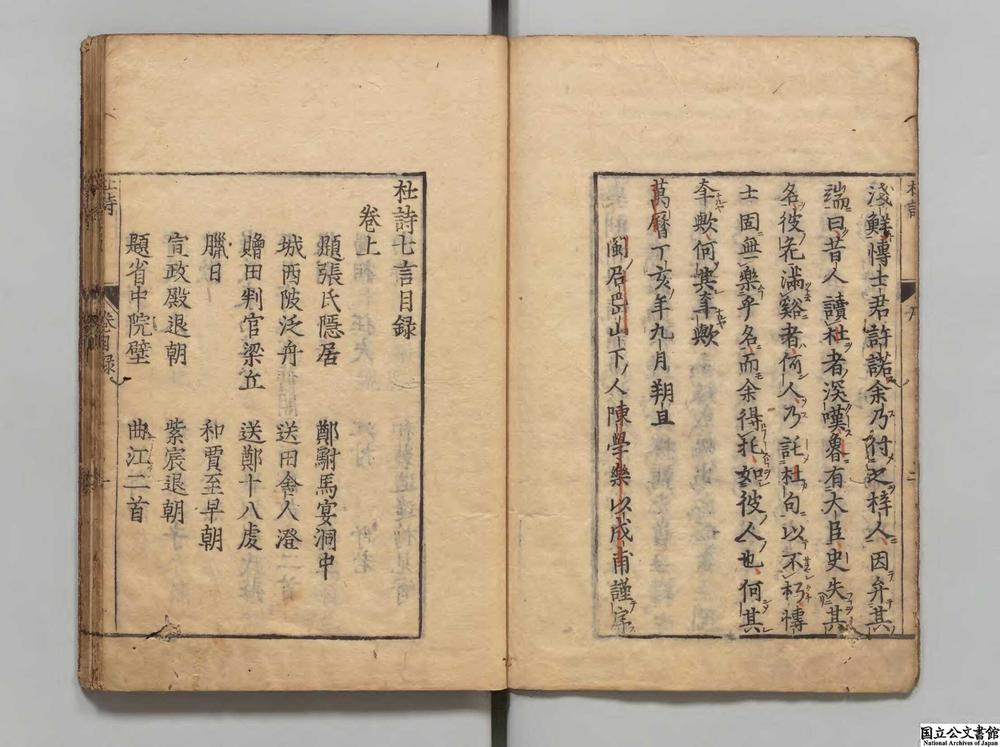 淺鮮博士君許諾余乃付之梓人因弁其
端曰昔人讀杜者深嘆魯有大臣史失其
名彼充滿谿者何人乃託杜句以不朽博
士固無樂乎名而余得托如彼人也何其
幸歟何其幸歟
萬曆丁亥年九月朔旦
閩居巴山下人陳學樂以成甫謹序
杜詩七言目錄
卷上
題張氏隱居
鄭駙馬宴洞中
城西陂泛舟
送田舍人澄二首
贈田判官梁丘
送鄭十八虔
臘日
和賈至早朝
宣政殿退朝
紫宸退朝
題省中院壁
曲江二首
国立公文書館
National Archives of Japan